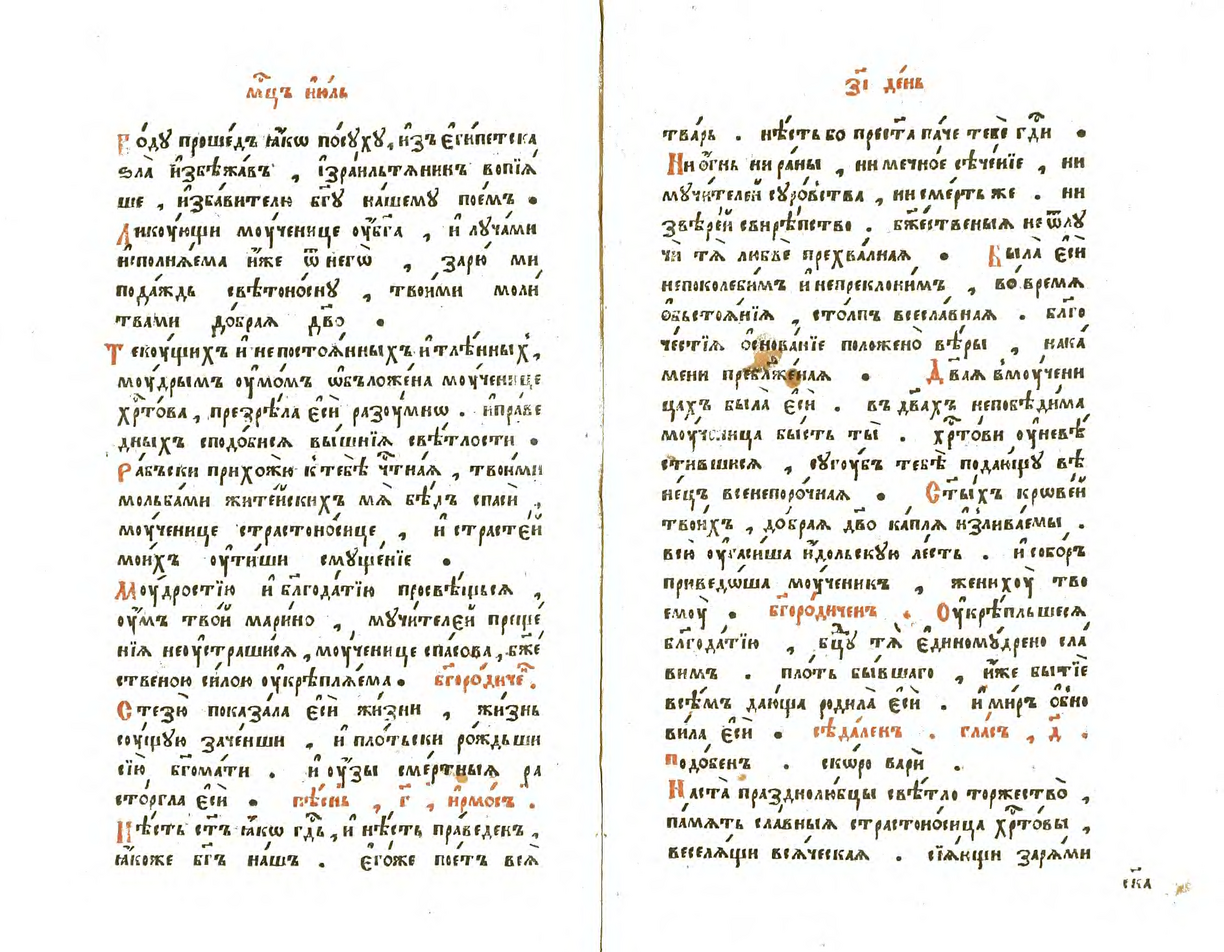 мⷭ҇цъ і҆ю́ль
Во́ду проше́дъ ꙗ҆́кѡ по́суху, и҆з̾ є҆гі́петска
ѕла̀ и҆збѣжа́въ , і҆зра́ильтѧнинъ вопїѧ́
ше , и҆зба́вителю бг҃у на́шему пое́мъ .
Ликоу́ющи моу́ченице оу҆ бг҃а , и҆ луча́ми
и҆сполнѧ́ема и҆́же ѿ негѡ̀ , зарю̀ ми
пода́ждь свѣтоно́сну , твои́ми моли
твами до́брая дв҃о .
Текоу́щихъ и҆ непостоѧ́нныхъ и҆ тлѣ́нныхъ,
моу́дрымъ оу҆мо́мъ ѡ҆бложе́на моу́ченице
хрⷭ҇то́ва , презрѣ́ла є҆сѝ разоу́мнѡ . и҆ пра́ве
дныхъ сподо́бисѧ вы́шнїѧ свѣ́тлости .
Ра́бъски прихожю̀ к̾ тебѣ̀ чⷭ҇тна́ѧ , твои́ми
мольба́ми жите́йскихъ мѧ̀ бѣ́дъ спасѝ ,
моу́ченице страстоно́сице , и҆ страсте́й
мои́хъ оу҆тишѝ смуще́нїе .
Моу́дростїю и҆ блг҃ода́тїю просвѣ́щьсѧ ,
оу҆́мъ тво́й мари́но , мучи́телей преще
нїѧ неоустраши́сѧ , моу́ченице спа́сова , бж҃е
ственою си́лою оу҆крѣплѧ́ема . бг҃оро́диче҇ .
Стезю̀ показа́ла є҆сѝ жи́зни , жи́знь
соу́щую заче́нши , и҆ пло́тьски ро́ждьши
сїю̀ бг҃ома́ти . и҆ оу҆́зы сме́ртныѧ ра
сто́ргла є҆сѝ . пѣ́снь , г҃ , і҆рмо́съ .
Нѣ́сть ст҃ъ ꙗ҆́кѡ гдⷭ҇ь , и҆ нѣ́сть пра́веденъ ,
ꙗ҆́коже бг҃ъ на́шъ . є҆го́же пое́тъ всѧ̀
з҃і де́нь
тва́рь . нѣ́сть бо прест҃а па́че тебѐ гдⷭ҇и .
Ни ѻ҆́гнь ни ра́ны , ни ме́чное сѣче́нїе , ни
мучи́телей суро́вства , ни сме́рть же . ни
звѣре́й свирѣ́пство . бж҃е́ственыѧ не ѿлу
чѝ тѧ̀ любвѐ прехва́лная . Была̀ є҆сѝ
непоколеби́мъ и҆ непрекло́нимъ , во вре́мѧ
ѻ҆бьстоѧ́нїѧ , сто́лпъ всесла́вная . блг҃о
че́стїѧ ѻ҆снова́нїе поло́жено вѣ́ры , на ка́
мени пребл҃же́ная . Два́я в̾ моу́чени
цахъ была̀ є҆сѝ . въ два́хъ непобѣди́ма
моу́ченица бы́сть ты̀ . хрⷭ҇то́ви оу҆невѣ́
стившисѧ , сугоу́бъ тебѣ̀ подаю́щу вѣ
не́цъ всенепоро́чная . Ст҃ы́хъ кро́вей
твои́хъ , до́брая дв҃о ка́плѧ и҆злива́емы .
всю̀ оу҆гаси́ша и҆́дольскую ле́сть . и҆ собо́ръ
приведо́ша моу́ченикъ , женихоу̀ тво
емоу̀ . бг҃оро́диченъ . Оу҆крѣ́пльшеся
блг҃ода́тїю , бц҃у тѧ̀ є҆диному́дрено сла́
вимъ . пло́ть бы́вшаго , и҆́же бытїѐ
всѣ́мъ даю́ща родила̀ є҆сѝ . и҆ ми́ръ ѻ҆бно
ви́ла є҆сѝ . сѣда́ленъ . гла́съ , д҃ .
подо́бенъ . ско́ро варѝ .
Наста̀ праздиолю́бцы свѣ́тло торжество̀ ,
па́мѧть сла́вныѧ страстоно́сица хрⷭ҇то́вы ,
веселѧ́щи всѧ́ческая . сїѧ́ющи заря́ми
ска